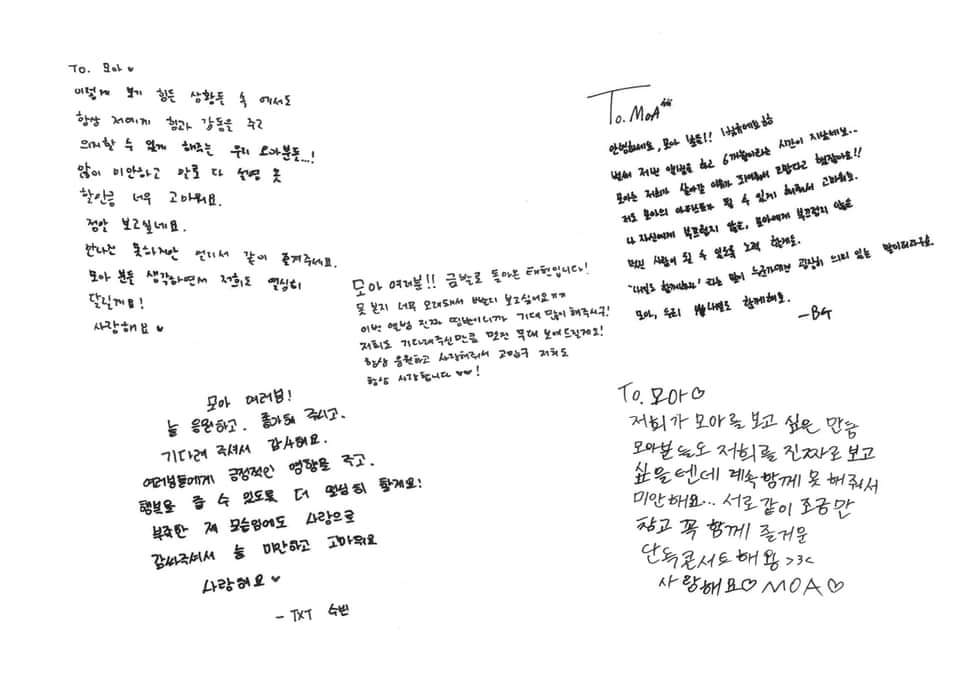 To. 모아♥
이렇게 보기 힘든 상황들 속에서도
항상 저에게 힘과 감동을 주고
의지할 수 있게 해주는 우리 모아분들...!
많이 미안하고 말로 다 설명 못
할만큼 너무 고마워요.
정말 보고싶네요.
만나진 못하지만 언디서 같이 즐겨주세요.
모아 분들 생각하면서 저희도 열심히
달릴게요!
사랑해요♥
To. MOA
안녕하세요, 모아 분들!!
벌써 저번 앨범을 하고 6개월이라는 시간이 지났네요..
모아는 저희가 살아갈 이유가 되어줘서 고맙다고 했잖아요!!
저도 모아의 아티스트가 될 수 있게 해줘서 고마워요.
나 자신에게 부끄럽지 않은, 모아에게 부끄럽지 않은
멋진 사람이 될 수 있도록 노력 할게요.
'내일도 함께하자' 라는 말이 누군가에겐 굉장히 의미 있는 말이더라구요.
모아, 우리 내일도 함께해요.
-BG
모아 여러분!! 금발로 돌아온 태현입니다!
못 본지 너무 오래돼서 빨리 보고싶어요ㅠㅠ
이번 앨범 진짜 띵반이니까 기대 많이 해주시구!
저희도 기다려주신만큼 멋진 무대 보여드릴게요!
항상 응원하고 사랑해줘서 고맙구 저희도
항상 사랑합니다♥♥!
모아 여러분!
늘 응원하고, 좋아해 주시고,
기다려 주셔서 감사해요.
여러분들에게 긍정적인 영향을 주고,
행복을 줄 수 있도록 더 열심히 할게요!
부족한 제 모습임에도 사랑으로
감싸주셔서 늘 미안하고 고마워요
사랑해요♥
- TXT 수빈
To. 모아♡
저희가 모아를 보고 싶은 만큼
모아분들도 저희를 진짜로 보고
싶을텐데 계속 함께 못 해줘서
미안해요... 서로 같이 조금만
참고 꼭 함께 즐거운
단독콘서트해용 >3<
사랑해요♡ MOA♡